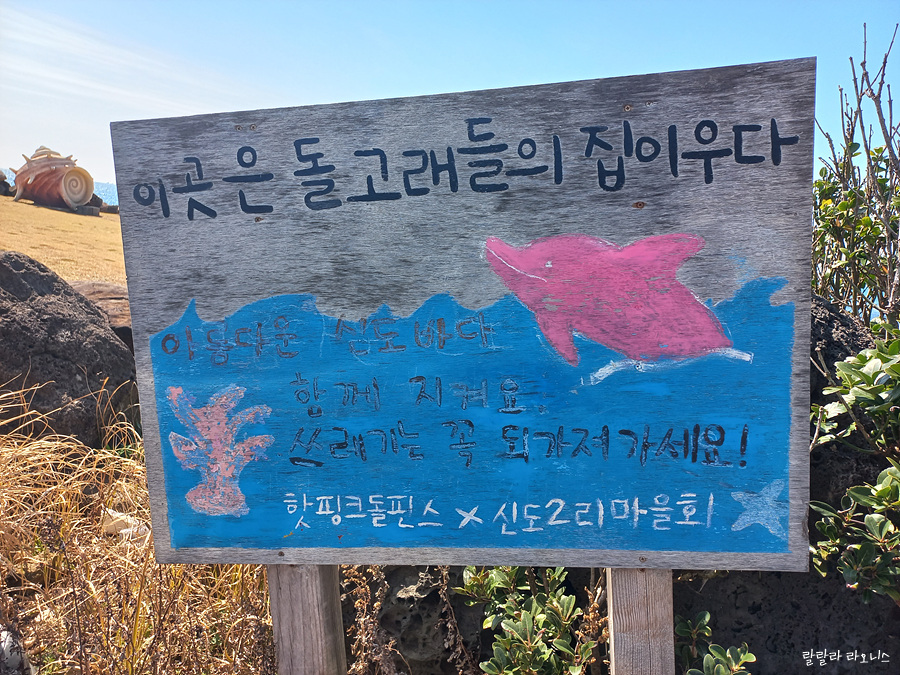 이곳은 돌고래들의 집이우다
아름다운 신도바다
함께 지켜요.
쓰레기는 꼭 되가져가세요!
핫핑크돌핀스 x 신도2리마을회
랄랄라 라오니스